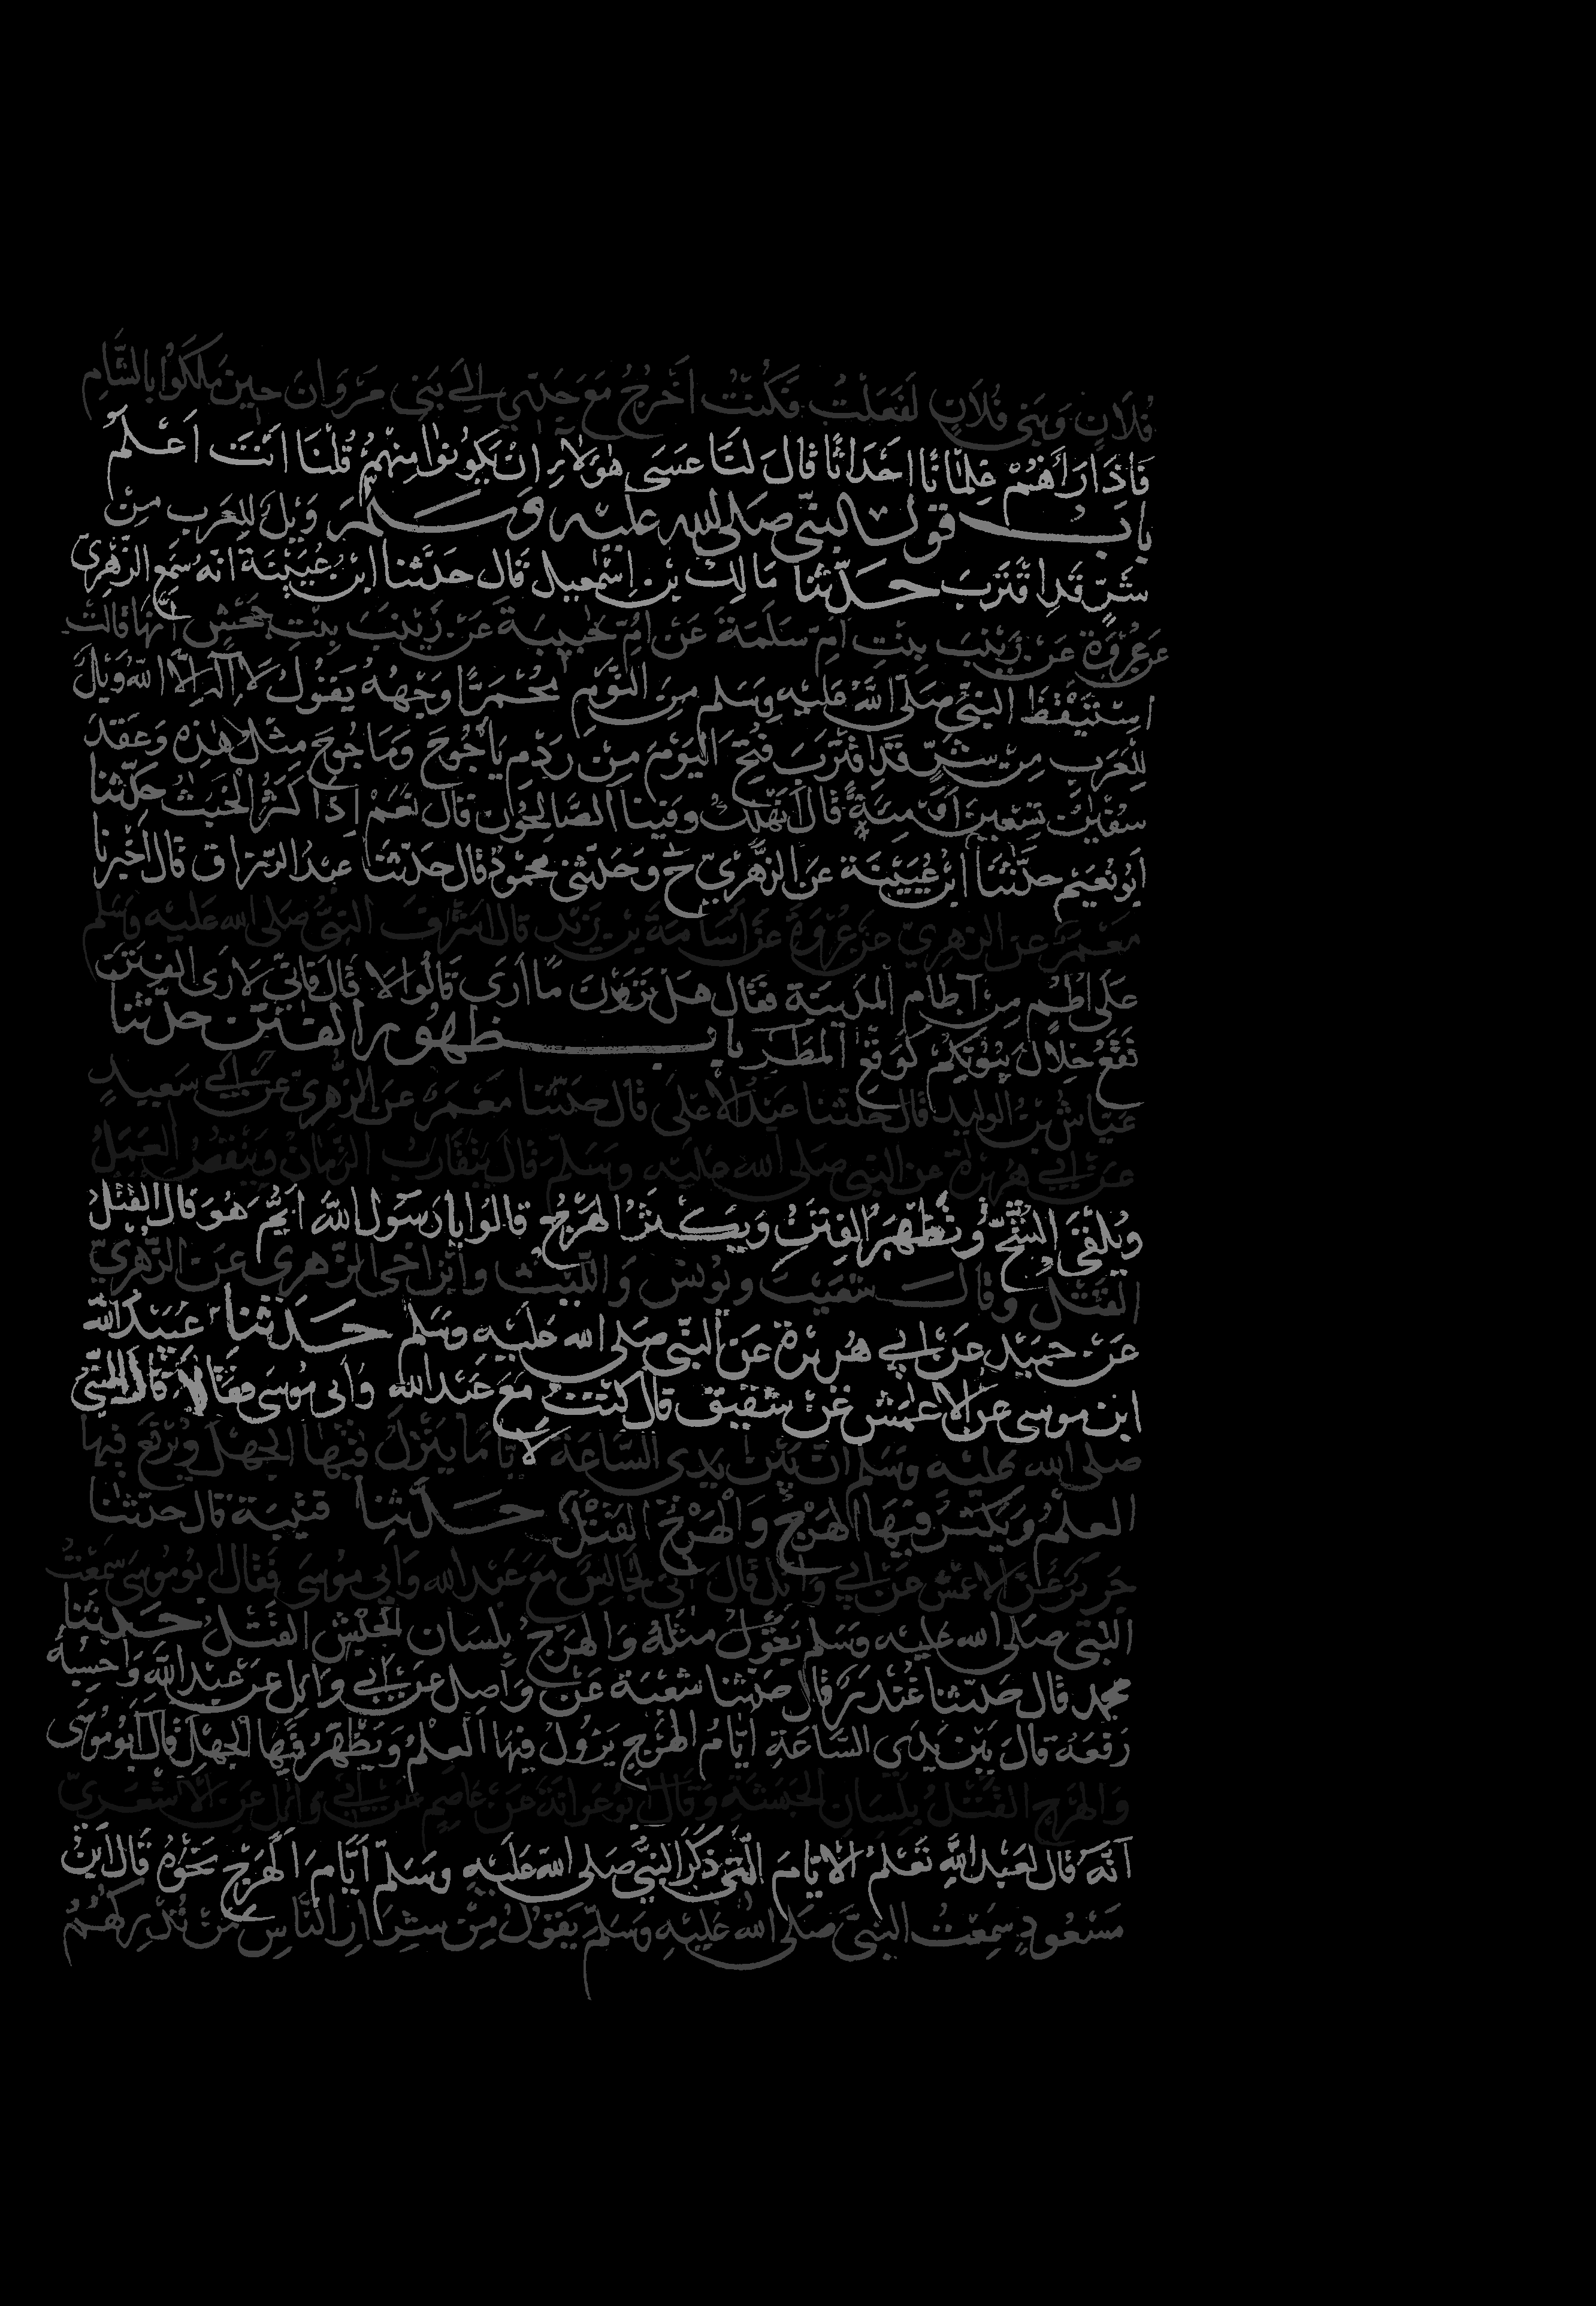 فُلَانٍ وَبَنِي فُلَانٍ لَفَعَلْتُ فَكُنْتُ اَخْرُجُ مَعَ جَدِّي اِلَى بَنِي مَرْوَانَ حِينَ مَلَكُوا بِالشَّامِ
فَاِذَا رَاَهُمْ غِلْمَانًا اَحْدَاثًا قَالَ لَنَا عَسَى هٰؤُلَاءِ اَنْ يَكُونُوا مِنْهُمْ قُلْنَا اَنْتَ اَعْلَمُ
باب قول النبي صلى الله عليه وسلم وَيْلٌ لِلْعَرَبِ مِنْ
شَرٍّ قَدِ اقْتَرَبَ حَدَّثَنَا مَالِكُ بْنُ اِسْمٰعِيلَ قَالَ حَدَّثَنَا ابْنُ عُيَيْنَةَ اَنَّهُ سَمِعَ الزُّهْرِيَّ
عَنْ عُرْوَةَ عَنْ زَيْنَبَ بِنْتِ اُمِّ سَلَمَةَ عَنْ اُمِّ حَبِيبَةَ عَنْ زَيْنَبَ بِنْتِ جَحْشٍ اَنَّهَا قَالَتْ
اسْتَيْقَظَ النَّبِيُّ صَلَّى اللَّهُ عَلَيْهِ وَسَلَّم مِنَ النَّوْمِ مُحْمَرًّا وَجْهُهُ يَقُولُ لَا اِلٰهَ اِلَّا اللَّهُ وَيْلٌ
لِلْعَرَبِ مِنْ شَرٍّ قَدِ اقْتَرَبَ فُتِحَ الْيَوْمَ مِنْ رَدْمِ يَاْجُوجَ وَمَاجُوجَ مِثْلُ هٰذِهِ وَعَقَدَ
سُفْيٰنُ تِسْعِينَ اَوْ مِئَةً قَالَ اَنَهْلِكُ وَفِينَا الصَّالِحُونَ قَالَ نَعَمْ اِذَا كَثُرَ الْخَبَثُ حَدَّثَنَا
اَبُو نُعَيْمٍ حَدَّثَنَا ابْنُ عُيَيْنَةَ عَنِ الزُّهْرِيِّ ح وَحَدَّثَنِي مَحْمُودٌ قَالَ حَدَّثَنَا عَبْدُ الرَّزَّاقِ قَالَ اَخْبَرَنَا
مَعْمَرٌ عَنِ الزُّهْرِيِّ عَنْ عُرْوَةَ عَنْ اُسَامَةَ بْنِ زَيْدٍ قَالَ اَشْرَفَ النَّبِيُّ صَلَّى اللَّه عَلَيْهِ وَسَلَّم
عَلَى اُطُمٍ مِنْ آطَامِ الْمَدِينَةِ فَقَالَ هَلْ تَرَوْنَ مَا اَرَى قَالُوا لَا قَالَ فَاِنِّي لَاَرَى الْفِتَنَ
تَقَعُ خِلَالَ بُيُوتِكُمْ كَوَقْعِ الْمَطَرِ باب ظهور الفتن حَدَّثَنَا
عَيَّاشُ بْنُ الْوَلِيدِ قَالَ حَدَّثَنَا عَبْدُ الْاَعْلَى قَالَ حَدَّثَنَا مَعْمَرٌ عَنِ الزُّهْرِيِّ عَنْ سَعِيدٍ
عَنْ اَبِي هُرَيْرَةَ عَنِ النَّبِيِّ صَلَّى اللَّه عَلَيْهِ وَسَلَّمَ قَالَ يَتَقَارَبُ الزَّمَانُ وَيَنْقُصُ الْعَمَلُ
وَيُلْقَى الشُّحُّ وَتَظْهَرُ الْفِتَنُ وَيَكْثُرُ الْهَرْجُ قَالُوا يَا رَسُولَ اللَّهِ اَيُّمَ هُوَ قَالَ الْقَتْلُ
الْقَتْلُ وَقَالَ شُعَيْبٌ وَيُونُسُ وَاللَّيْثُ وَابْنُ اَخِي الزُّهْرِيِّ عَنِ الزُّهْرِيِّ
عَنْ حُمَيْدٍ عَنْ اَبِي هُرَيْرَةَ عَنِ النَّبِيِّ صَلَّى اللَّه عَلَيْهِ وَسَلَّم حَدَّثَنَا عُبَيْدُ اللَّه
ابْنُ مُوسَى عَنِ الْاَعْمَشِ عَنْ شَقِيقٍ قَالَ كُنْتُ مَعَ عَبْدِ اللَّه وَاَبِي مُوسَى فَقَالَا قَالَ النَّبِيُّ
صَلَّى اللَّه عَلَيْهِ وَسَلَّم اِنَّ بَيْنَ يَدَيِ السَّاعَةِ لَاَيَّامًا يَنْزِلُ فِيهَا الْجَهْلُ وَيُرْفَعُ فِيهَا
الْعِلْمُ وَيَكْثُرُ فِيهَا الْهَرْجُ وَالْهَرْجُ الْقَتْلُ حَدَّثَنَا قُتَيْبَةُ قَالَ حَدَّثَنَا
جَرِيرٌ عَنِ الْاَعْمَشِ عَنْ اَبِي وَائِلٍ قَالَ اِنِّي لَجَالِسٌ مَعَ عَبْدِ اللَّه وَاَبِي مُوسَى فَقَالَ اَبُو مُوسَى سَمِعْتُ
النَّبِيَّ صَلَّى اللَّه عَلَيْهِ وَسَلَّم يَقُولُ مِثْلَهُ وَالْهَرْجُ بِلِسَانِ الْحَبَشِ الْقَتْلُ حَدَّثَنَا
مُحَمَّد قَالَ حَدَّثَنَا غُنْدَرٌ قَالَ حَدَّثَنَا شُعْبَةُ عَنْ وَاصِلٍ عَنْ اَبِي وَائِلٍ عَنْ عَبْدِ اللَّهِ وَاَحْسِبُهُ
رَفَعَهُ قَالَ بَيْنَ يَدَيِ السَّاعَةِ اَيَّامُ الْهَرْجِ يَزُولُ فِيهَا الْعِلْمُ وَيَظْهَرُ فِيهَا الْجَهْلُ قَالَ اَبُو مُوسَى
وَالْهَرْجُ الْقَتْلُ بِلِسَانِ الْحَبَشَةِ وَقَالَ اَبُو عَوَانَةَ عَنْ عَاصِمٍ عَنْ اَبِي وَائِلٍ عَنِ الْاَشْعَرِيِّ
اَنَّهُ قَالَ لِعَبْدِ اللَّهِ تَعْلَمُ الْاَيَّامَ الَّتِي ذَكَرَ النَّبِيُّ صَلَّى اللَّه عَلَيْهِ وَسَلَّم اَيَّامَ الْهَرْجِ نَحْوَهُ قَالَ ابْنُ
مَسْعُودٍ سَمِعْتُ النَّبِيَّ صَلَّى اللَّهُ عَلَيْهِ وَسَلَّم يَقُولُ مِنْ شِرَارِ النَّاسِ مَنْ تُدْرِكُهُمُ